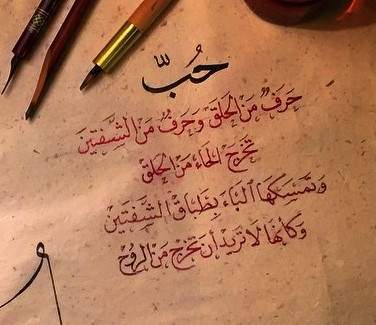 حُبّ
حَرفٌ مِنَ الحَلقِ وَحَرفٌ مِنَ الشَّفَتَين
تَخرُجُ الحَاءُ مِنَ الحَلقِ
وَتُمسِكُهَا البَاءُ بِطِبَاقِ الشَّفَتَين
وَكَأنَّهَا لَا تُرِيدُ أن تَخرُجَ مِنَ الرُّوح